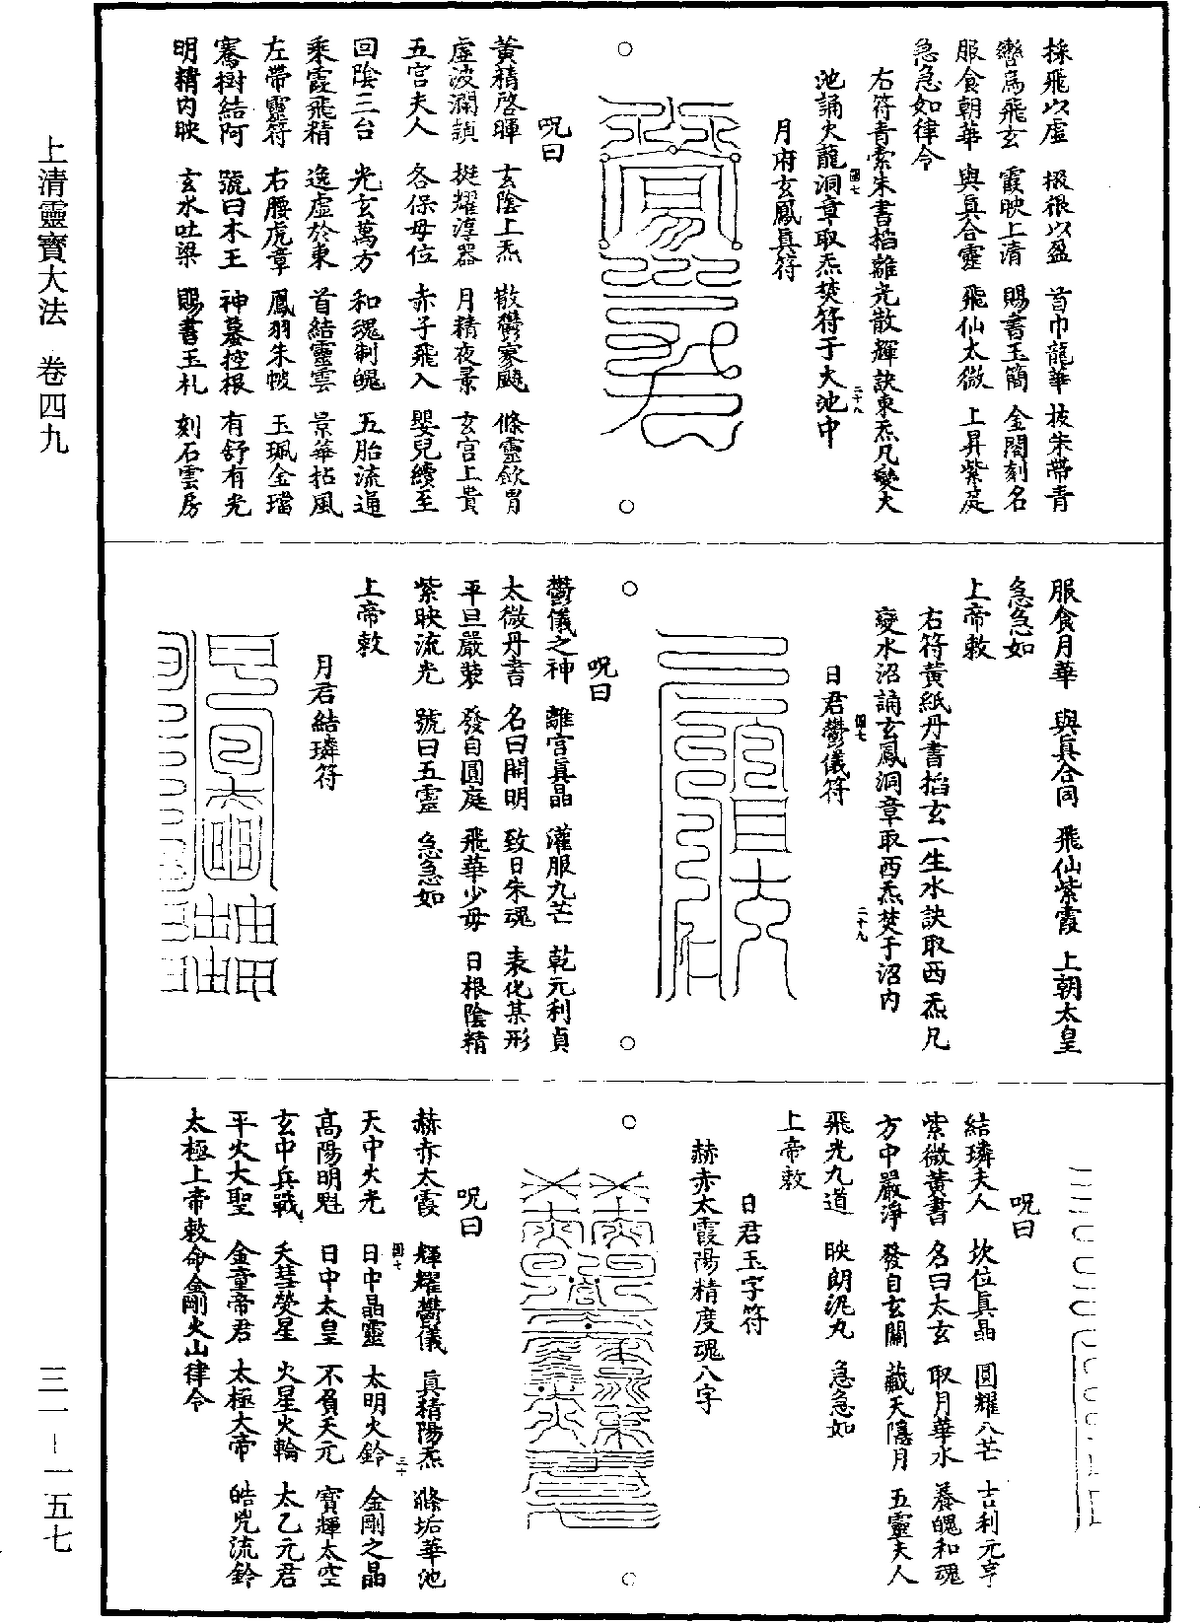 採飛以虛　掇很以盈　首巾龍華　披朱帶青
轡爲飛玄　霞映上清　賜書玉簡　金閣刻名
服食朝華　與眞合靈　飛仙太微　上昇紫庭
急急如律令
右符青索朱書掐離光散輝訣東炁凡變大
池誦火龍洞章取炁焚符于大池中
月府玄鳳眞符
呪曰
黃精啓暉　玄陰上炁　散鬱寥飈　條靈斂胃
虛波瀾頴　挺耀淳器　月精夜景　玄宮上貴
五宮夫人　各保母位　赤子飛入　嬰兒續至
回陰三台　光玄萬方　和魂制魄　五胎流通
乘霞飛精　逸虛於東　首結靈雲　景華拈風
左帶靈符　右腰虎章　鳳羽朱帔　玉珮金璫
騫樹結阿　號曰木王　神蓋控根　有舒有光
明精內映　玄水吐梁　賜書玉札　刻石雲房
服食月華　與眞合同　飛仙紫霞　上朝太皇
急急如
上帝敕
右符黃紙丹書掐玄一生水訣取西炁凡
變水沼誦玄鳳洞章取西炁焚于沼內
日君鬱儀符
呪曰
鬱儀之神　離宮眞晶　灌服九芒　乾元利貞
太微丹書　名曰開明　致日朱魂　表化某形
平旦嚴蓼　發自圓庭　飛華少母　日根陰精
紫映流光　號曰五靈　急急如
上帝敕
月君結璘符
呪曰
結璘夫人　坎位眞晶　圓耀八芒　吉利元亨
紫微黃書　名曰太玄　取月華水　養魄和魂
方中嚴淨　發自玄關　藏天隱月　五靈夫人
飛光九道　映朗泥丸　急急如
上帝敕
日君玉字符
赫赤太霞陽精度魂八字
呪曰
赫赤太霞　輝耀鬱儀　眞精陽炁　滌垢華池
天中火光　日中晶靈　太明火鈴　金剛之晶
高陽明魁　日中太皇　不負天元　寶輝太空
玄中兵戰　天彗熒星　火星火輪　太乙元君
平火大聖　金童帝君　太極大帝　皓兇流鈴
太極上帝敕命金剛火山律令
上清靈寶大法　卷四九
三一－一五七